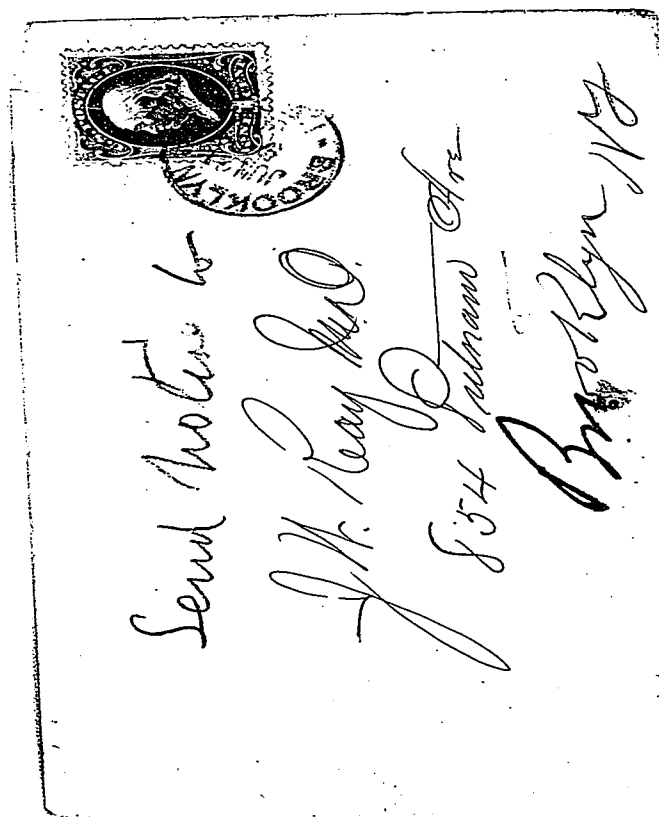 BROOKLYN
JUN
Send Notice to
J. W. Reay M.D.
854 Putnam Ave
Brooklyn NY